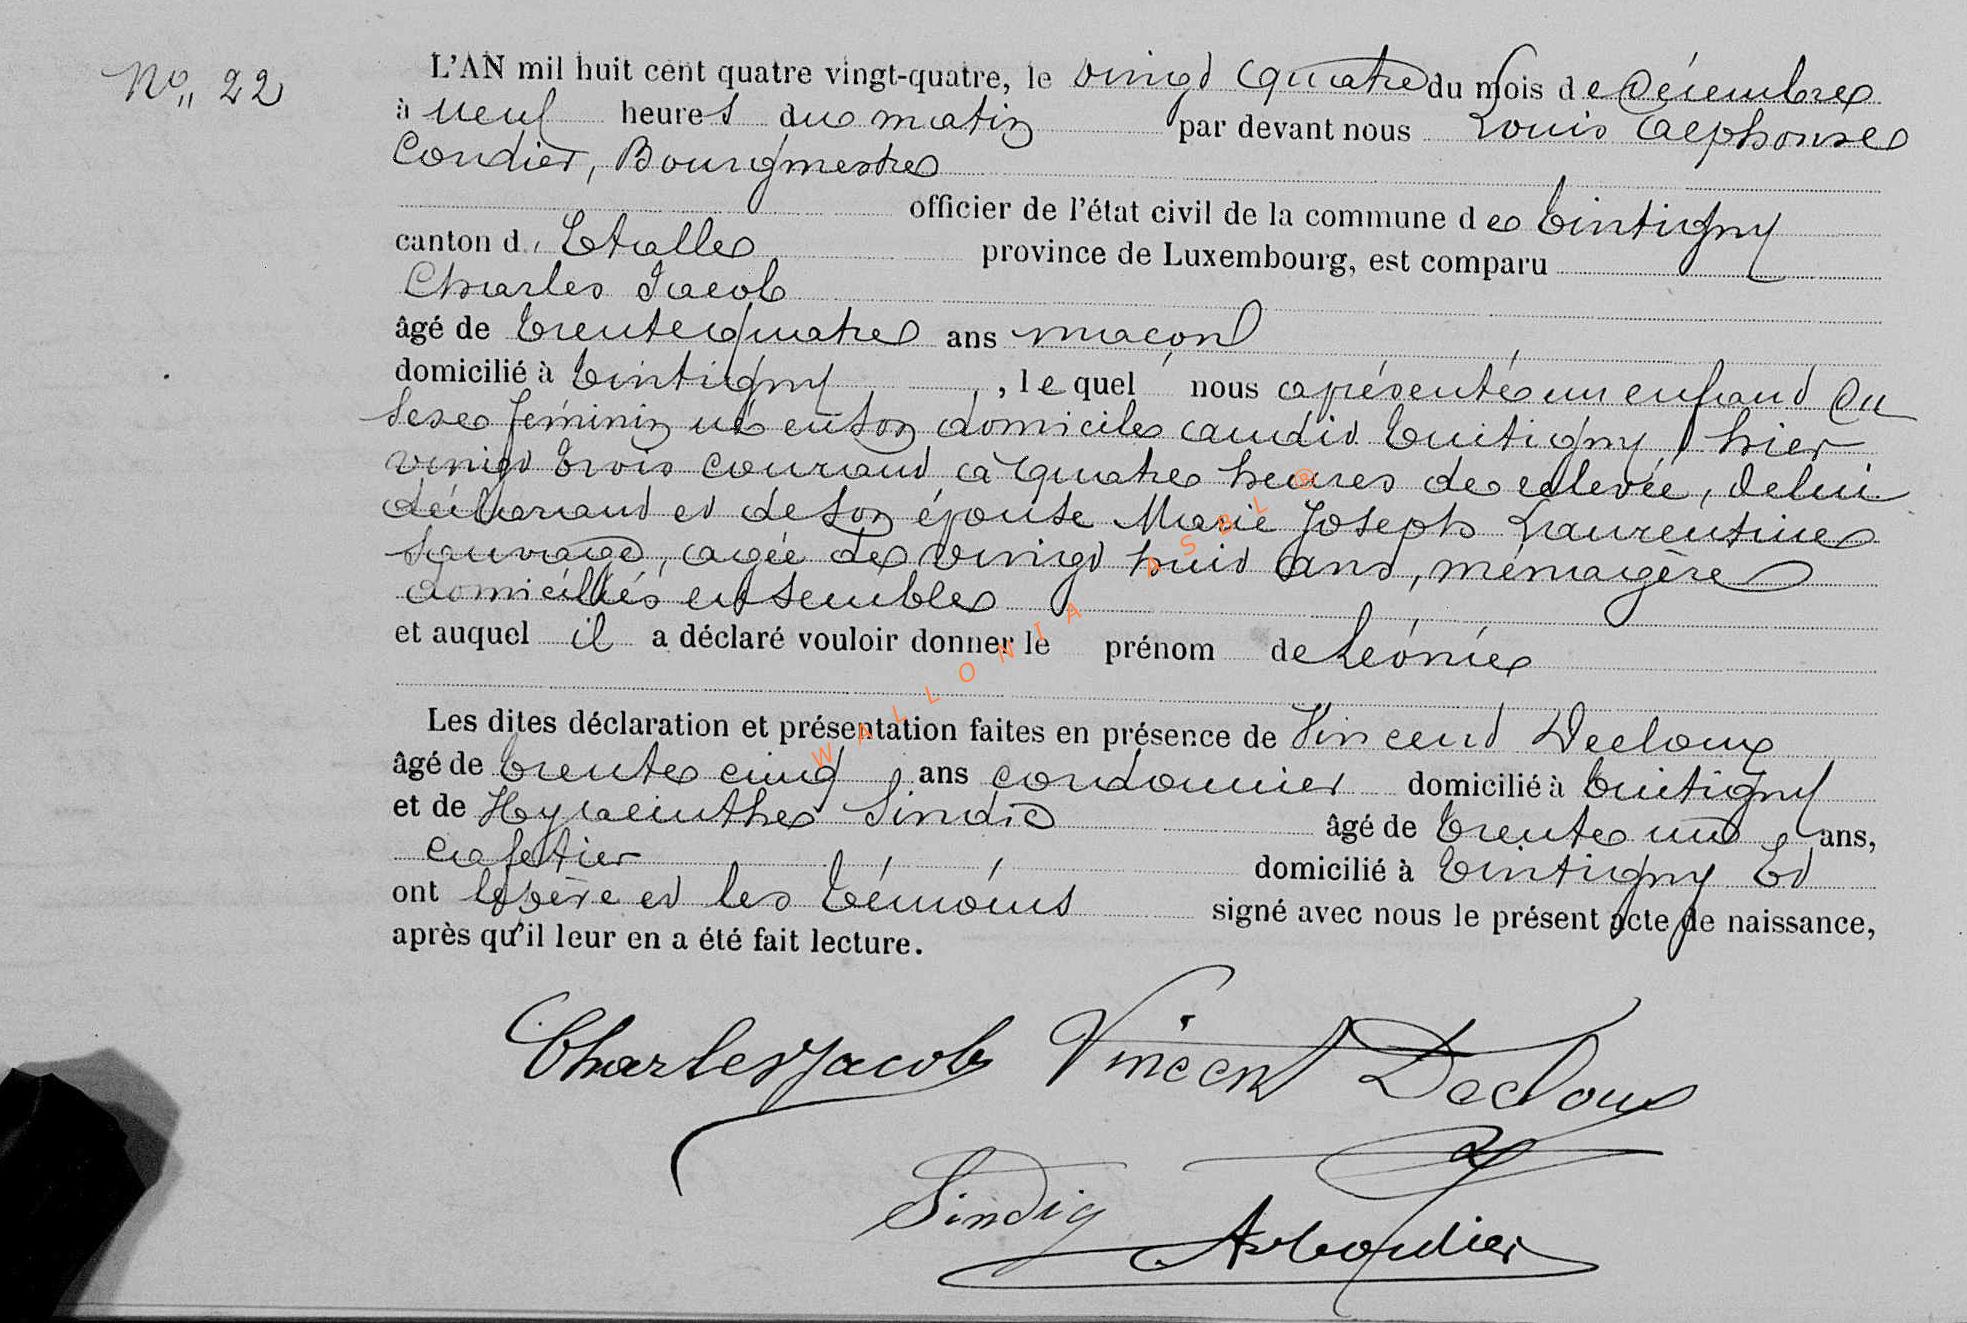 No 22
L'AN mil huit cent quatre vingt-quatre, le vingt quatre du mois de Décembre
à neuf heures du matin par devant nous Louis Alphonse
Cordier, Bourgmestre
officier de l'état civil de la commune de Tintigny
canton d' Etalle province de Luxembourg, est comparu
Charles Jacob
âgé de trente quatre ans maçon
domicilié à Tintigny, lequel nous a présenté un enfant du
sexe féminin né en son domicile audit Tintigny hier
vingt trois courant à quatre heures de relevée, de lui
déclarant et de son épouse Marie Joseph Laurentine
Sauvage, agée de vingt huit ans, ménagère
domiciliés ensemble
et auquel il a déclaré vouloir donner le prénom de Léonie
Les dites déclaration et présentation faites en présence de Vincent Decloux
âgé de trente cinq ans cordonnier domicilié à Tintigny
et de Hyacinthe Sindic âgé de trente un ans,
cafetier domicilié à Tintigny Et
ont le père et les témoins signé avec nous le présent acte de naissance,
après qu'il leur en a été fait lecture.
Charles Jacob Vincent Decloux
Sindig
WALLONIA ASBL ®